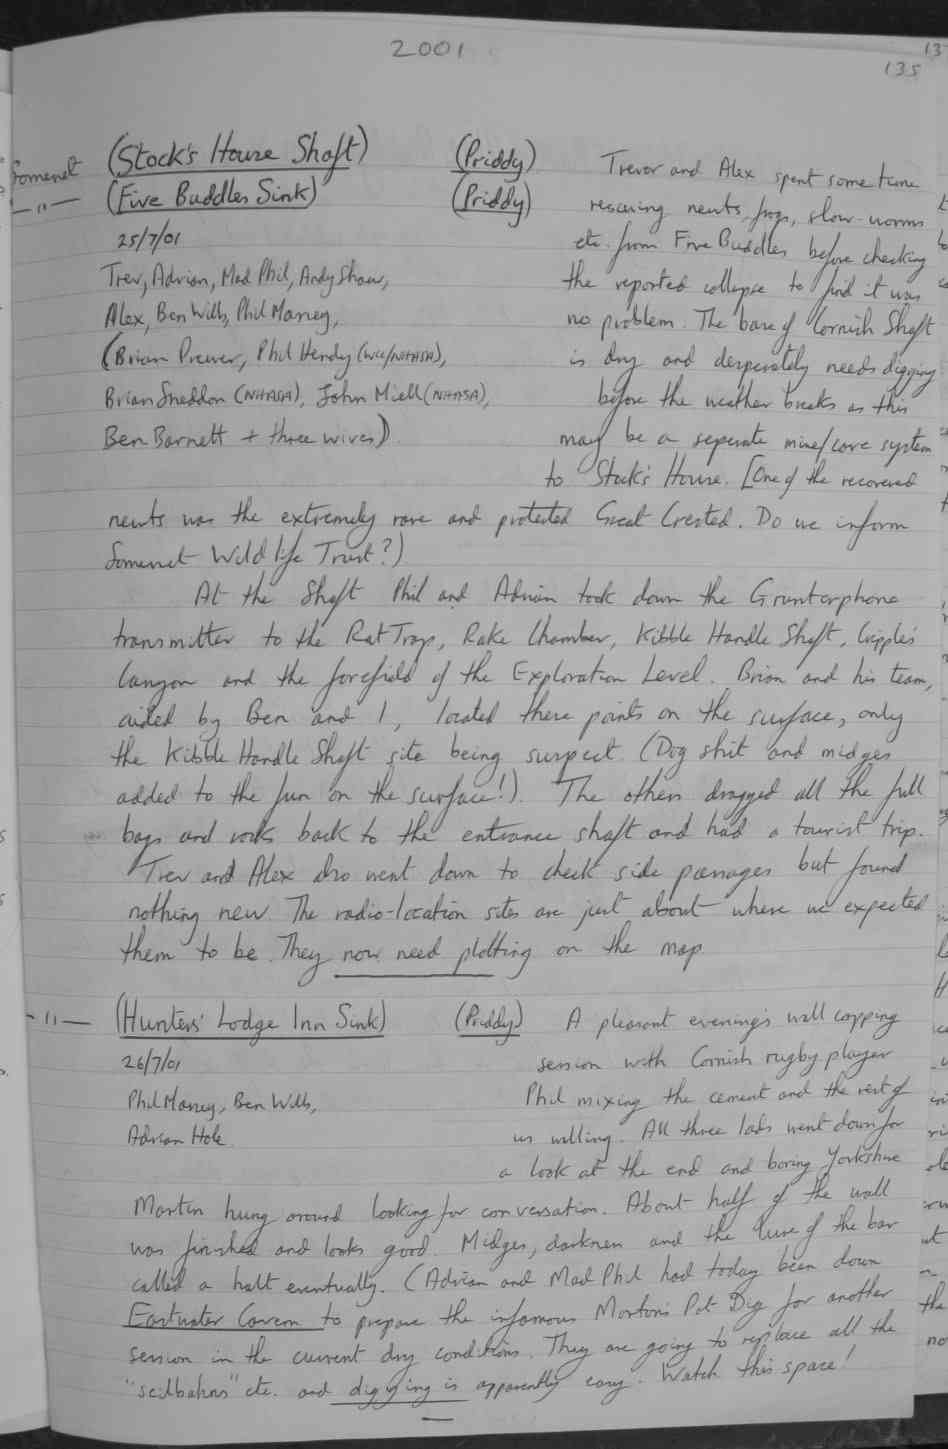 2001
135
Somerset (Stock's House Shaft) (Priddy)
— " — (Five Buddles Sink) (Priddy)
25/7/01
Trev, Adrian, Mad Phil, Andy Shaw,
Alex, Ben Wills, Phil Massey,
(Brian Prewer, Phil Hendy (WCC/NHASA),
Brian Sneddon (NHASA), John Miell (NHASA),
Ben Barnett + three wives)
Trevor and Alex spent some time
rescuing newts, frogs, slow-worms
etc. from Five Buddles before checking
the reported collapse to find it was
no problem. The base of Cornish Shaft
is dry and desperately needs digging
before the weather breaks as this
may be a seperate mine/cave system
to Stock's House. [One of the recovered
newts was the extremely rare and protected Great Crested. Do we inform
Somerset Wildlife Trust?)
At the Shaft Phil and Adrian took down the Grunterphone
transmitter to the Rat Trap, Rake Chamber, Kibble Handle Shaft, Cripple's
Canyon and the forefield of the Exploration Level. Brian and his team,
aided by Ben and I, located these points on the surface, only
the Kibble Handle Shaft site being suspect. (Dog shit and midges
added to the fun on the surface!). The others dragged all the full
bags and rocks back to the entrance shaft and had a tourist trip.
Trev and Alex also went down to check side passages but found
nothing new. The radio-location sites are just about where we expected
them to be. They now need plotting on the map.
— " — (Hunters' Lodge Inn Sink) (Priddy)
26/7/01
Phil Massey, Ben Wills,
Adrian Hole.
A pleasant evening's wall capping
session with Cornish rugby player
Phil mixing the cement and the rest of
us walling. All three lads went down for
a look at the end and boring Yorkshire
Martin hung around looking for conversation. About half of the wall
was finished and looks good. Midges, darkness and the lure of the bar
called a halt eventually. (Adrian and Mad Phil had today been down
Eastwater Cavern to prepare the infamous Morton's Pot Dig for another
session in the current dry conditions. They are going to replace all the
"seilbahns" etc. and digging is apparently easy. Watch this space!